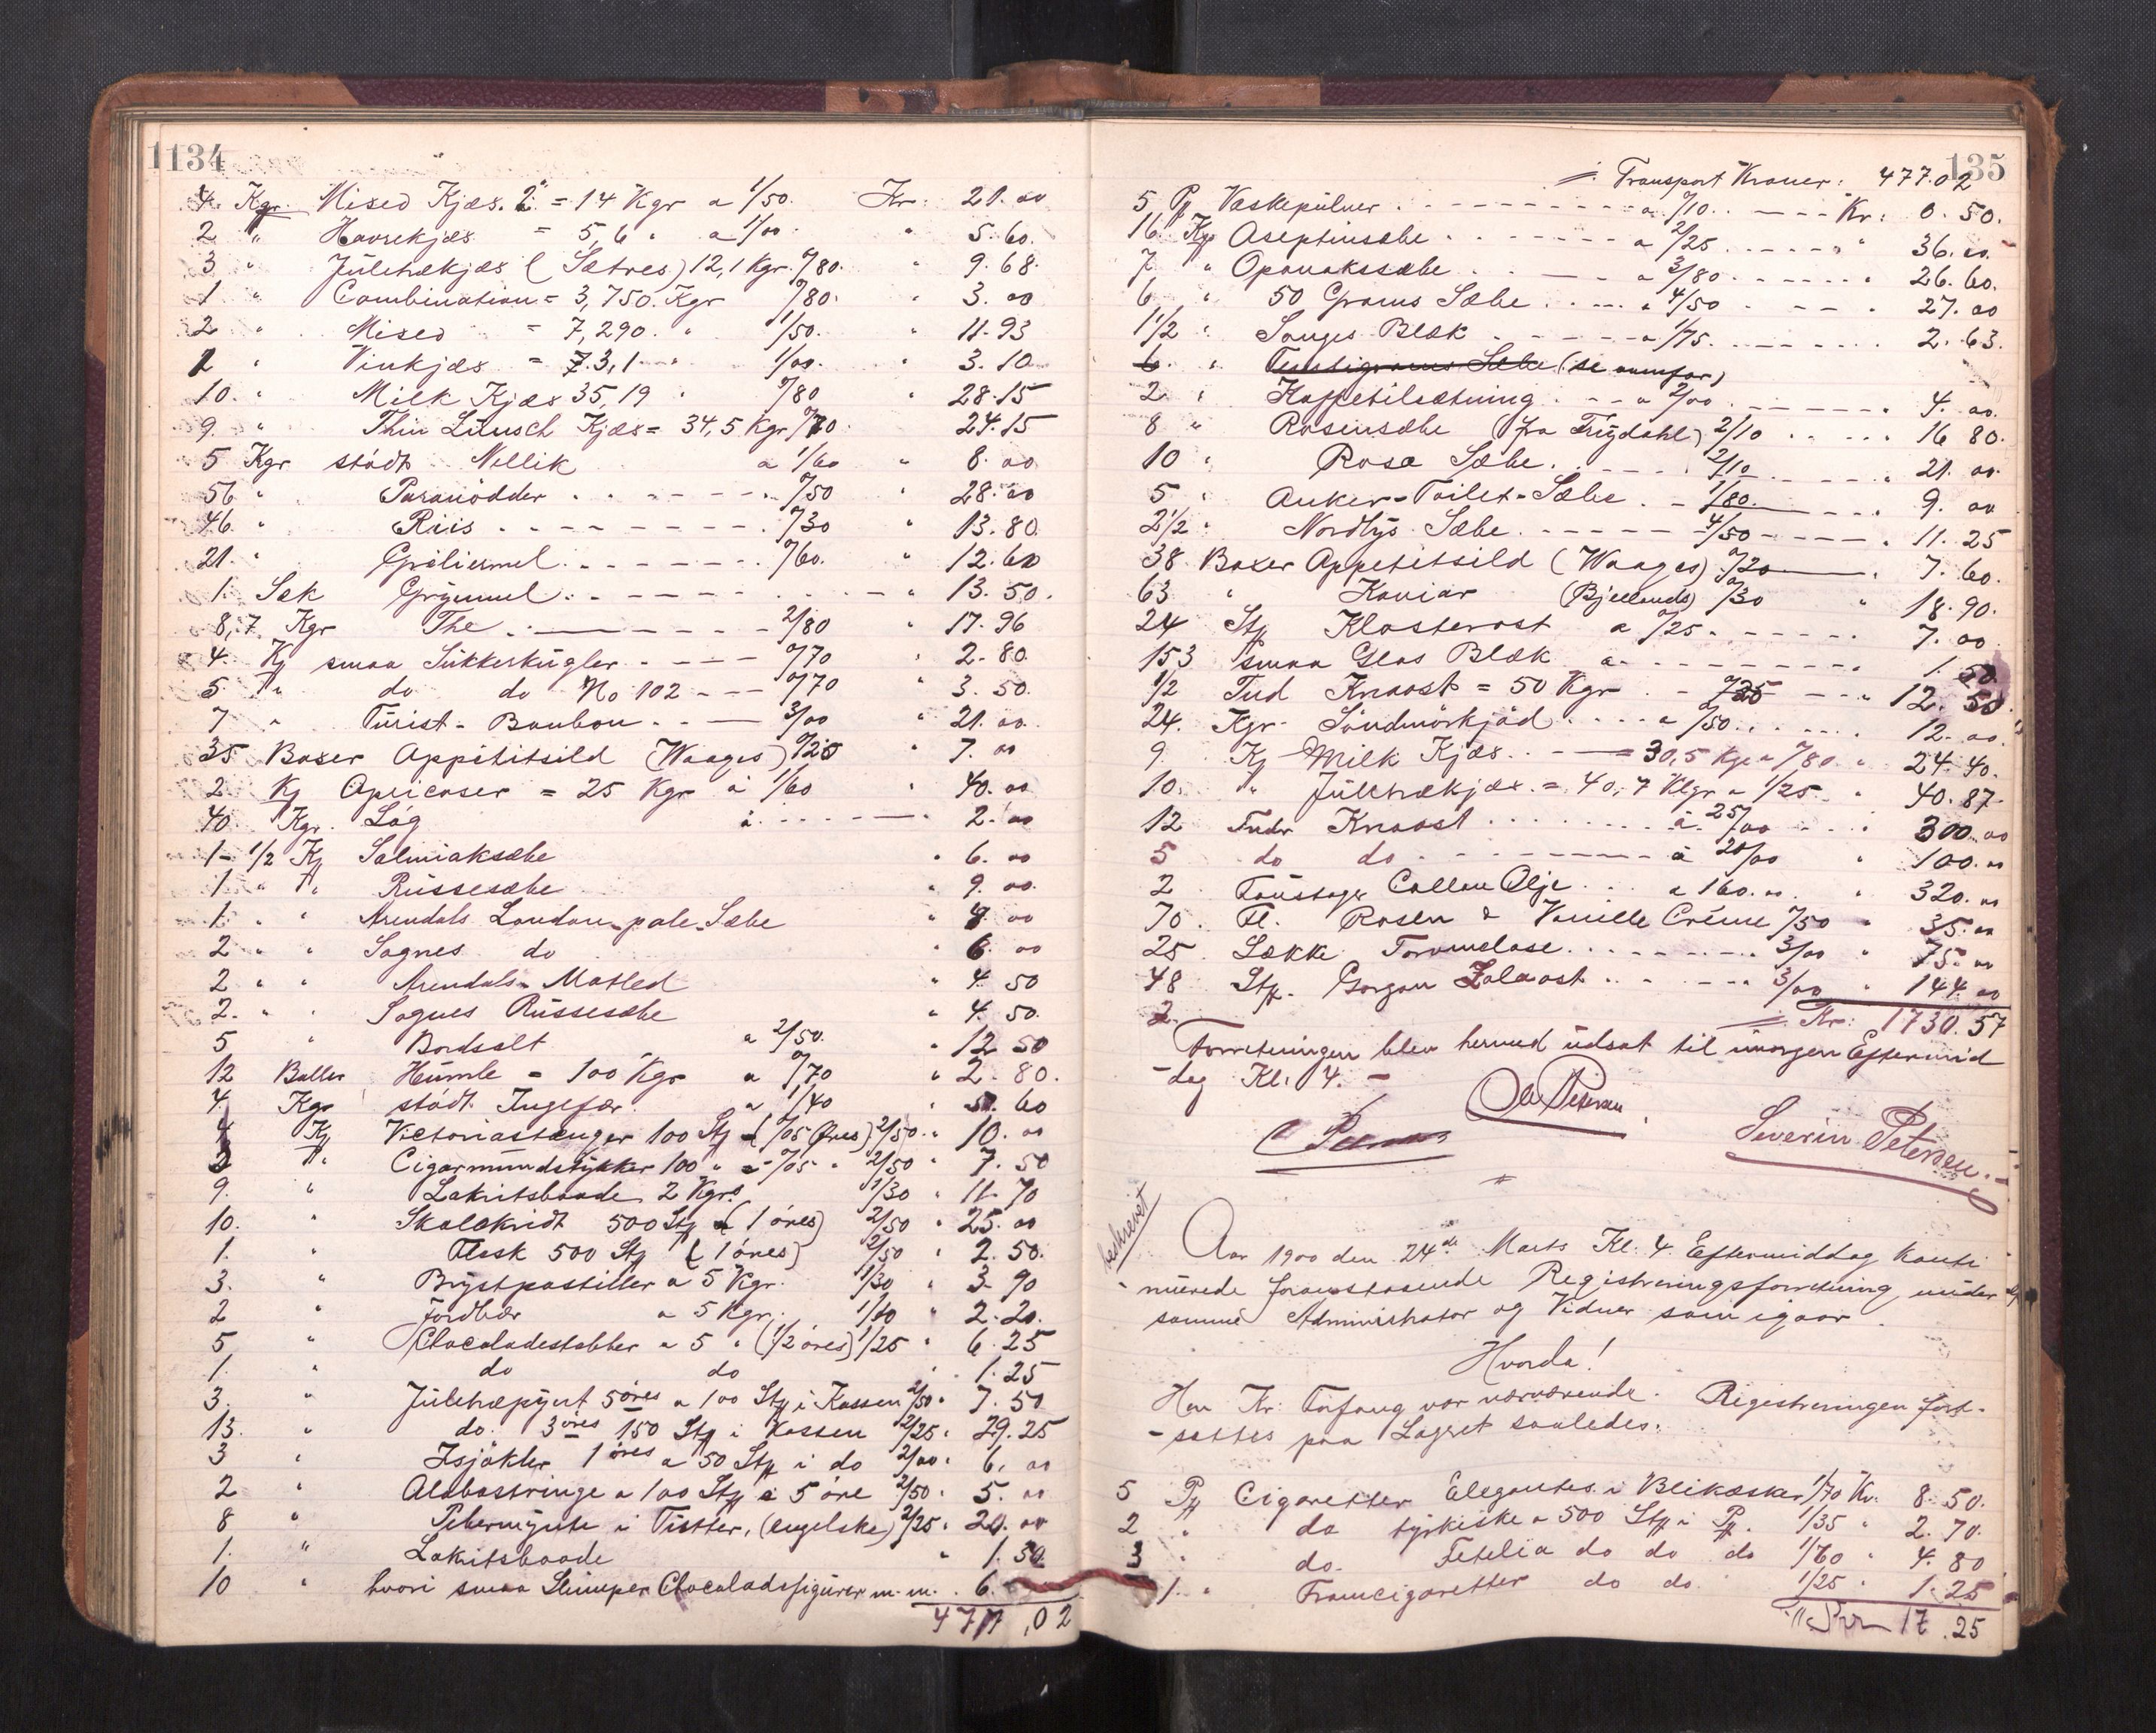 1134
4. Kgr. Mixed Kjæs. = 14 Kgr a 1/50. Kr: 21.00
2 " Havrekjæs = 5,6 " a 1/00 " 5.60.
3 " Juletrækjæs (Sætres) 12,1 Kgr. 0/80. " 9.68.
1 " Combination = 3,750. Kgr 0/80. " 3.00
2 " Mixed = 7,290. " 1/50. " 11.93
1 " Vinkjæs = 3,1 " 1/00. " 3.10
10. " Milk Kjæs 35,19 " 0/80 " 28.15
9. " Thin Lunsch Kjæs = 34,5 Kgr 0/70. 24.15
5 Kgr stødt Nellik a 1/60 " 8.00
56 " Paranödder 0/50 " 28.00
46. " Riis 0/30 " 13.80.
21. " Gröliermel 0/60. " 12.60
1. Sek Grynmel " 13.50.
8,7 Kgr The 2/80 " 17.96
4. Kj smaa Sukkerkugler 0/70 " 2.80.
5 " do do No 102 0/70 " 3.50.
7 " Turist-Bonbon 3/00 " 21.00.
35 Boxer Appetitsild (Waages) 0/20 " 7.00
2 Kj Apricoser = 25 Kgr à 1/60 " 40.00
40. Kgr. Løg à " 2.00
1- 1/2 Kj Salmiaksæbe " 6.00
1 " " Russesæbe " 9.00.
1. " " Arendals London pale Sæbe " 9.00
2 " " Sognes do " 6.00
2 " " Arendals Matled " 4.50
2. " " Sognes Russesæbe " 4.50.
5 " Bordsalt a 2/50. " 12.50
12 Baller Humle = 100 Kgr a 0/70 " 2.80.
4. Kgr stødt Ingefær. a 1/40 " 5.60
4 Kj Victoriastænger 100 Stk (0/05 Øres) 2/50. " 10.00
3 " Cigarmundstykker 100 " 0/05 " 2/50 " 7.50
9. " Lakritsbaade 2 Kgrs 1/30 " 11.70
10. " Skalckridt 500 Stk (1 öres) 2/50 " 25.00
1. " Flesk 500 Stk (1 öres) 2/50 " 2.50.
3. " Brystpastiller a 5 Kgr. 1/30 " 3.90
2 " Jordbær a 5 Kgr. 1/10 " 2.20.
5 " Chocoladestabber a 5 " (1/2 öres) 1/25 " 6.25
1. " do do " 1.25
3. " Juletræpynt 5 öres a 100 Stk i Kassen 2/50 " 7.50
13. " do. 3 öres 150 Stk i Kassen 2/25 " 29.25
3 " Isjökler 1 öres a 50 Stk i do 2/00 " 6.00
2 " Alabastringe a 100 Stk a 5 öre 2/50 " 5.00
8 " Pebermynte i Tistter, (engelske) 2/25 " 20.00
1. " Lakritsbaade " 1.50
10 " hvori smaa Slumper Chocoladefigurer m.m. " 6.
477,02
135
Transport Kroner: 477.02
5 Pk Vaskepulver a 0/10 Kr: 0.50.
16. Kgr Aseptinsæbe a 2/25 " 36.00.
7 " Opanakssæbe a 3/80 " 26.60.
6 " 50 Grams Sæbe a 4/50 " 27.00
1 1/2 " Songes Blæk a 1/75. " 2.63.
6. " Femtigrams Sæbe (se ovenfor)
2 " Kaffetilsætning a 2/00 " 4.00.
8 " Rosensæbe (fra Frydahl) 2/10 " 16.80.
10 " Rosa Sæbe. 2/10 " 21.00.
5 " Anker-Toilet-Sæbe 1/80. " 9.00
2 1/2 " Nordlys Sæbe 4/50 " 11.25
38 Boxer Appetitsild (Waages) 0/20 " 7.60.
63 " Kaviar (Bjellands) 0/30 " 18.90.
24 Stk Klosterost a 0/25 7.00
153 smaa Glas Blæk a 1.50
1/2 Tud Knaost = 50 Kgr 0/25 " 12.50.
24. Kgr. Söndmörkjöd a 0/50 12.00.
9. Kj Milk Kjæs. = 30,5 Kgr a 0/80 " 24.40.
10. " Juletrækjæs. = 40,7 Klgr a 1/25 " 40.87
12 Tudr Knaost à 25/00 " 300.00
5 do do à 20/00 " 100.00
2 Foustager Collan Olje a 160.00 " 320.00
70. Fl. Rosen & Vanille Créme 0/50 " 35.00
25. Sække Torvmelase. 3/00 " 75.00
48 Stk. Gorgon Zolaost 3/00 " 144.00
Kr: 1730.57
Forretningen blev hermed udsat til imorgen Eftermid
-dag Kl: 4. -
Ole Petersen
Severin Petersen.
beskrevet
Aar 1900 den 24de Marts Kl: 4 Eftermiddag konti
-nuerede foranstaaende Registreringsforretning under
samme Administrator og Vidner som igaar.
Hvorda!
Han Kr. Forfang var nærværende. Registreringen fort-
-sattes paa Lageret saaledes:
5 Pk Cigaretter Elegantes i Blikæsker 1/70 Kr. 8.50.
2 " do tyrkiske a 500 Stk i Pk. 1/35 " 2.70.
3 " do. Fetelia do do do 1/60 " 4.80
1. " Framcigaretter do do. 1/25 " 1.25
17.25